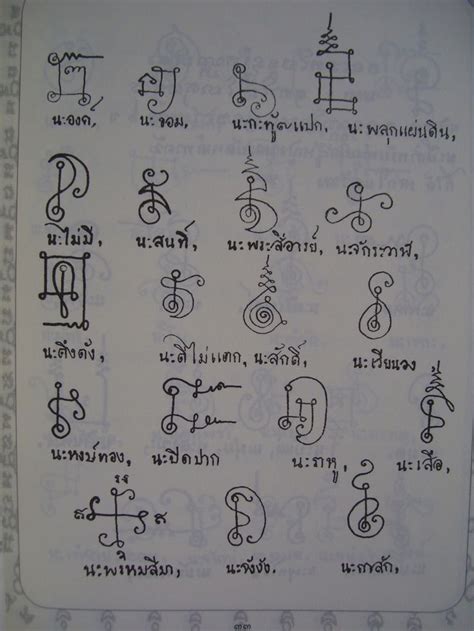 นะองค์, นะจอม, นะกะทู้๗แปก, นะพลุกแผ่นดิน,
นะไม่มี, นะสนที่, นะพระสีอารย์, นะจักระวาฬ,
นะตึงดัง, นะตีไม่แตก, นะสักดิ์, นะเวียนวง
นะหงษ์ทอง, นะปิดปาก นะราหู, นะเสือ,
นะพรหมสีมา, นะจังงัง. นะราสัก,
๓๓